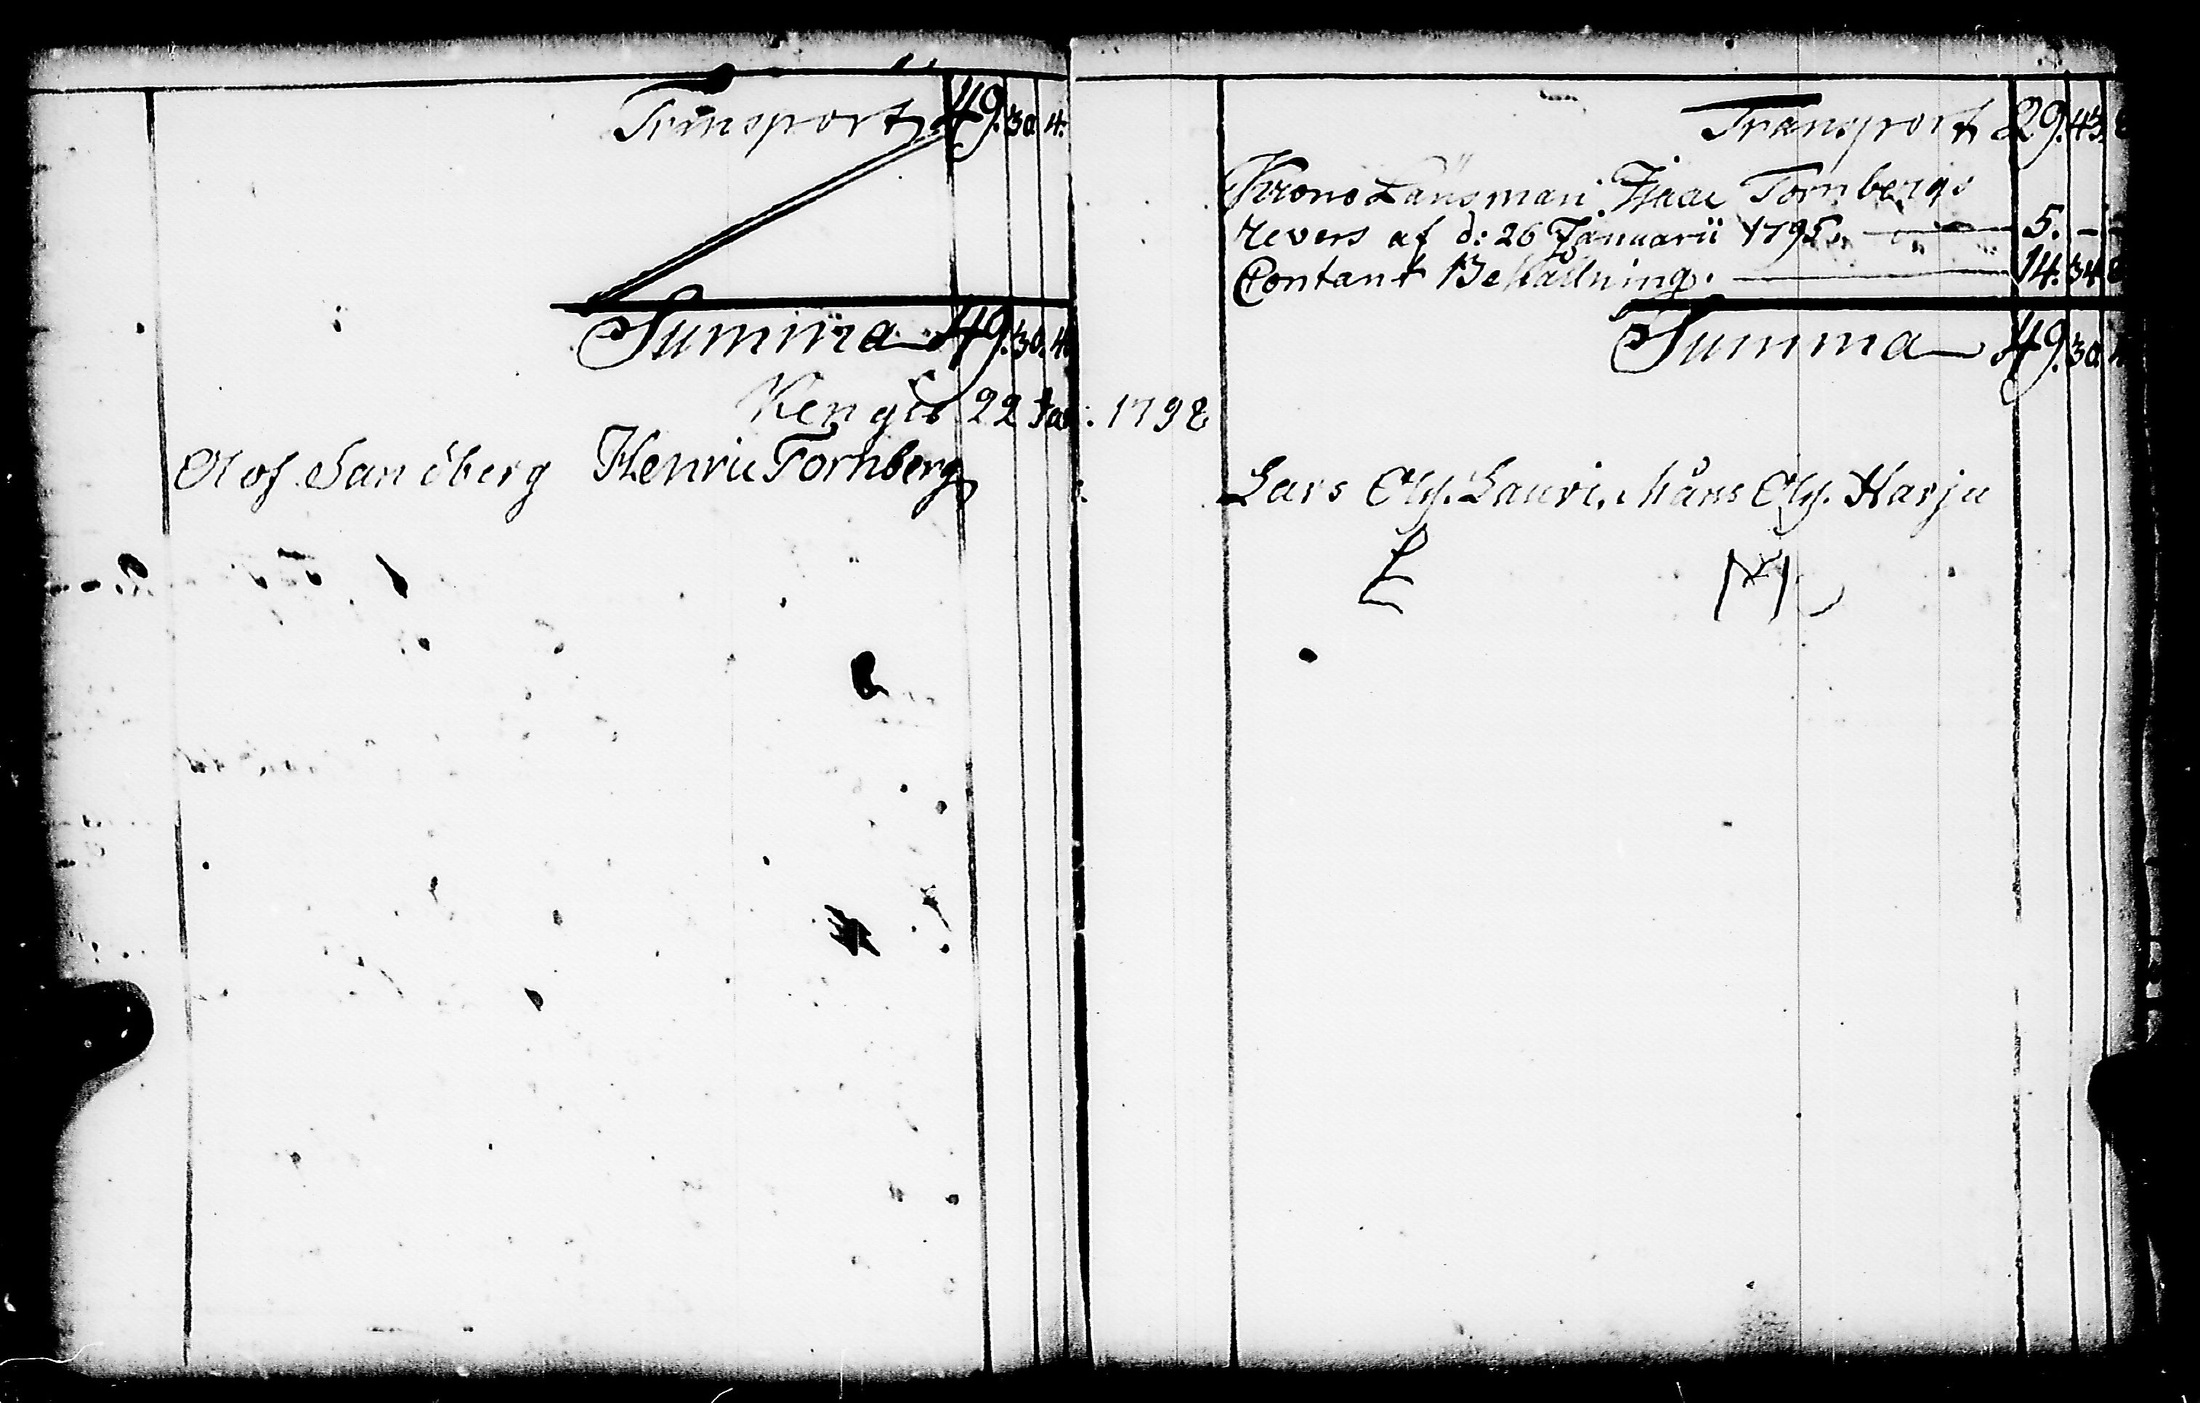 Transport 49. 30. 4.
Summa 49. 30. 4
Kengis 22 Jan: 1798
Olof Sandberg Henric Fornberg
Transport 29. 43. 8
Krono Länsman Isaac Fornbergs
revers af d: 26 Januarii 1795. 5. - -
Contant Behållning. 14. 34. 8
Summa 49. 30. 4
Lars Ols. Lauri. Måns Ols. Harju
L M